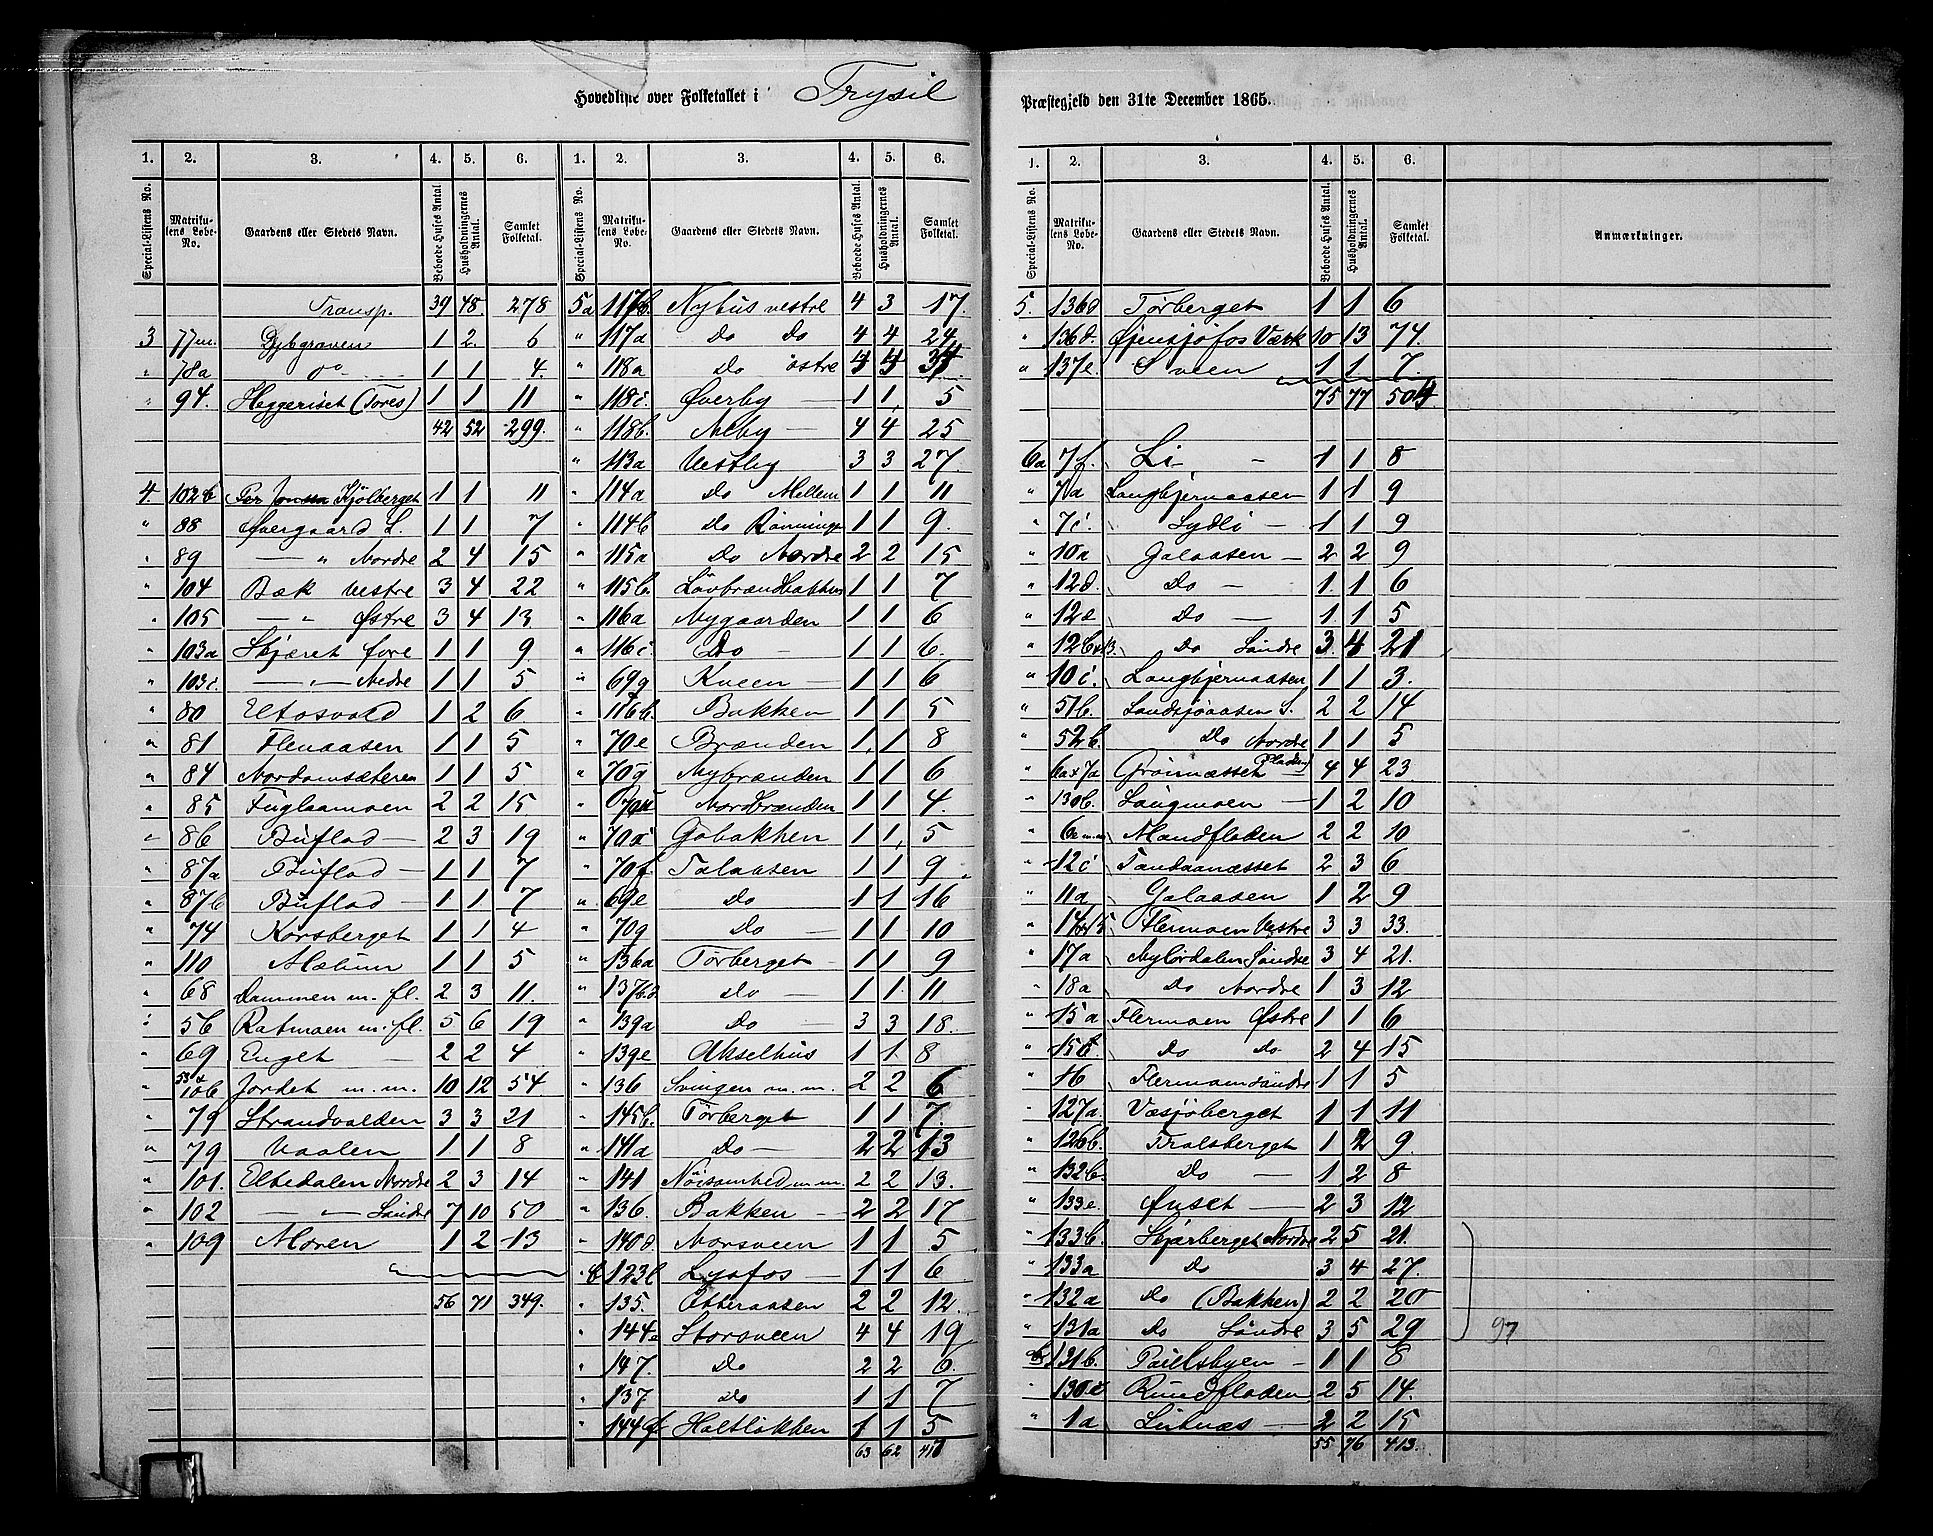 Hovedliste over Folketallet i Trysil Præstegjeld den 31te December 1865.
1. 2. 3. 4. 5. 6. 1. 2. 3. 4. 5. 6.
Special-Listens No. Matrikulens Løbe-No. Gaardens eller Stedets Navn. Beboede Huses Antal. Husholdningernes Antal. Samlet Folketal. Special-Listens No. Matrikulens Løbe-No. Gaardens eller Stedets Navn. Beboede Huses Antal. Husholdningernes Antal. Samlet Folketal.
Transp. 39 48. 278
3 77m. Dybgraven 1 2. 6
" 78a do 1 1 4.
" 94. Heggeriset (Tores) 1 1 11
42 52 299.
4. 102b Kjölberget 1 1 11
" 88 Övergaard S. 1 1 7
" 89 — " Nordre 2 4 15
" 104 Bæk Vestre 3 4 22
" 105 — " Østre 3 4 13
" 103a Skjæret övre 1 1 9
" 103c. — " — Nedre 1 1 5
" 80 Eltosvold 1 2 6
" 81 Flenaasen 1 1 5
" 84 Nordomsæteren 1 1 5
" 85 Fuglaamoen 2 2 15
" 86 Buflod — 2 3 19
" 87a Buflod — 1 1 7
" 87b Buflod — 1 1 7
" 74 Korsberget 1 1 4
" 110 Mælum 1 1 5
" 68 Dammen m. fl. 2 3 11.
" 56 Ratmoen m. fl. 5 6 19
" 69 Enget — 2 2 4
" 53 x 106 Jordet m. m. 10 12 54
" 79 Strandvolden 3 3 21
" 79 Vaalen 1 1 8
" 101. Eltedalen Nordre 2 3 14
" 102 — " — Söndre 7 10 50
" 109 Moren 1 2 13
56 71 349.
5a 117b. Nyhus vestre 4 3 17.
" 117a Do Do 4 4 24
" 118a Do östre 4 4 34
" 118c. Øverby — 1 1 5
" 118b. Neby — 4 4 25
" 113a Vestby 3 3 27.
" 114a Do Mellem 1 1 11
" 114b Do Rönningen 1 1 9.
" 115a Do Nordre 2 2 15
" 115b. Lövbrændbakken 1 1 7
" 116a Nygaarden 1 1 6
" 116c. Do — 1 1 6.
" 69g Kveen — 1 1 6
" 116b. Bakken 1 1 5
" 70e Brænden 1 1 8
" 70g Nybrænden 1 1 6
" Nordbrænden 1 1 4.
" 70a Gobakken 1 1 5
" 70f Talaasen 1 1 9
" 69e do 1 1 16
" 70g Do — 1 1 10
" 136a Törberget 1 1 9
" 137b. Do — 1 1 11
" 139a Do — 3 3 18.
" 139e Akselhus 1 1 8
" 136 Svingen m. m. 2 2 6
" 145b. Törberget 1 1 7.
" 141a Do — 2 2 13
" 141 Nöisomhed m m. 2 2 13.
" 136. Bakken — 2 2 17
" 140d Norsveen 1 1 5
" b 123b Lysfos — 1 1 6
" 135. Otteraasen 2 2 12.
" 144e Storsveen 4 4 19
" 147. Do 2 2 6.
" 137 Do 1 1 7
" 144f Holtlökken 1 1 5
63 62 410
1. 2. 3. 4. 5. 6.
Special-Listens No. Matrikulens Løbe-No. Gaardens eller Stedets Navn. Beboede Huses Antal. Husholdningernes Antal. Samlet Folketal. Anmærkninger.
5. 136d Törberget 1 1 6
" 136d. Øiensjöfos Værk 10 13 74.
" 137e. Sveen 1 1 7.
75 77 504
6a 7f. Li — 1 1 8
" 7a Langbjernaasen 1 1 9
" 7c. Lydli — 1 1 9
" 10a Galaasen — 2 2 9
" 12d. Do — 1 1 6
" 12e Do — 1 1 5
" 12b x 13. Do Söndre 3. 4 21
" 10c. Langbjernaasen 1 1 3.
" 51b. Landsjöaasen S. 2 2 14
" 52b. Do Nordre 1 1 5
" 6a x 7a Grönnæsset 4 4 23
" 130b. Langmoen — 1 2 10
" Mandfloden 2 2 10
" 12c Tandaanæsset 2 3 6
" 11a Galaasen 1 2 9
" Flermoen Vestre 3 3 33.
" 17a Nylördalen Söndre 3 4 21.
" 18a Do Nordre 1 3 12
" 15a Flermoen Østre 1 1 6
" 15b Do Do 2 4 15
" 16 Flermoen Söndre 1 1 5
" 127a. Væsjöberget 1 1 11
" 126b. Tralsberget 1 2 9.
" 132b. Do — 1 2 8
" 133e Önset — 2 3 12
" 133b. Skjærberget Nordre 2 5 21.
" 133a Do 3 4 27.
" 132a do (Bakken) 2 2 20
" 131a do Söndre 3 5 29 97
b 131b. Poulsbyen — 1 1 8
" 130c Rundfloden 2 5 14.
" 1a Linnæs — 2 2 15
55 76 413.